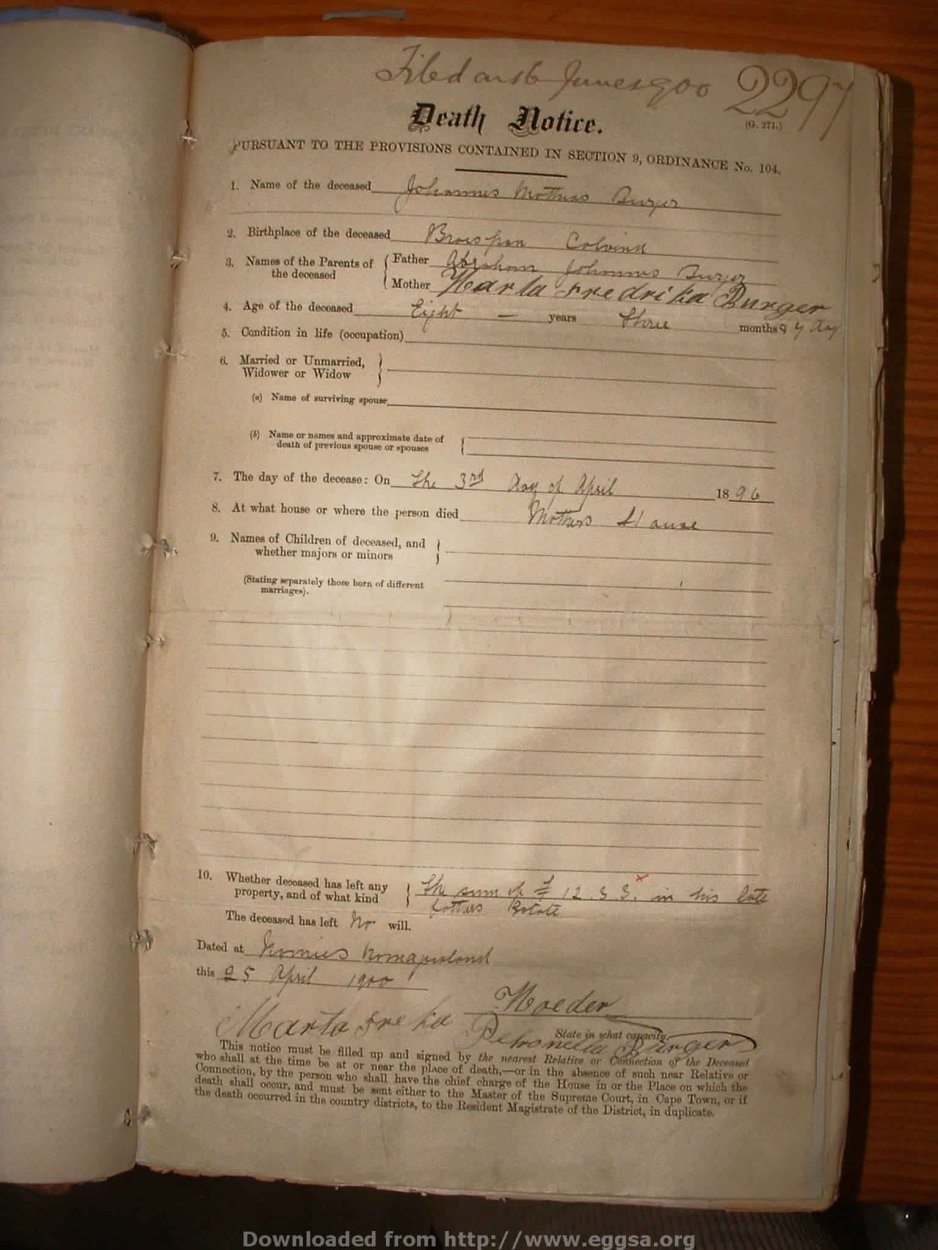 Filed on 16 June 1900 2297
Death Notice.
(G. 271.)
PURSUANT TO THE PROVISIONS CONTAINED IN SECTION 9, ORDINANCE No. 104.
1. Name of the deceased Johannes Mathias Burger
2. Birthplace of the deceased
3. Names of the Parents of the deceased
Father Abraham Johannes Burger
Mother Marta Fredrika Burger
4. Age of the deceased Eight — years three months 9 day
5. Condition in life (occupation)
6. Married or Unmarried,
Widower or Widow
(a) Name of surviving spouse
(b) Name or names and approximate date of
death of previous spouse or spouses
7. The day of the decease: On The 3rd day of April 1896
8. At what house or where the person died Mothers House
9. Names of Children of deceased, and
whether majors or minors
(Stating separately those born of different
marriages).
10. Whether deceased has left any
property, and of what kind
The sum of £ 12. 3 3. in his late
fathers Estate
The deceased has left No will.
Dated at
this 25 April 1900
Moeder
State in what capacity.
Marta Freka Petronella Burger
This notice must be filled up and signed by the nearest Relative or Connection of the Deceased
who shall at the time be at or near the place of death,—or in the absence of such near Relative or
Connection, by the person who shall have the chief charge of the House in or the Place on which the
death shall occur, and must be sent either to the Master of the Supreme Court, in Cape Town, or if
the death occurred in the country districts, to the Resident Magistrate of the District, in duplicate.
Downloaded from http://www.eggsa.org